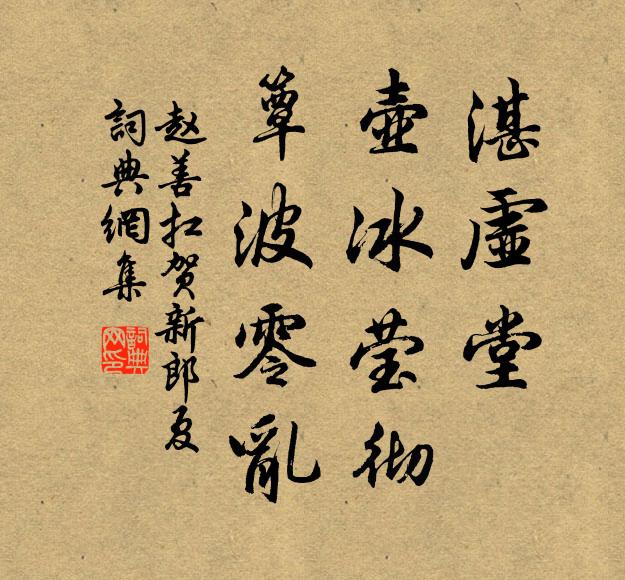 湛虚堂
壶冰莹彻
簟波零亂
赵善扛贺新郎夏
詞典網集
詞典
网印